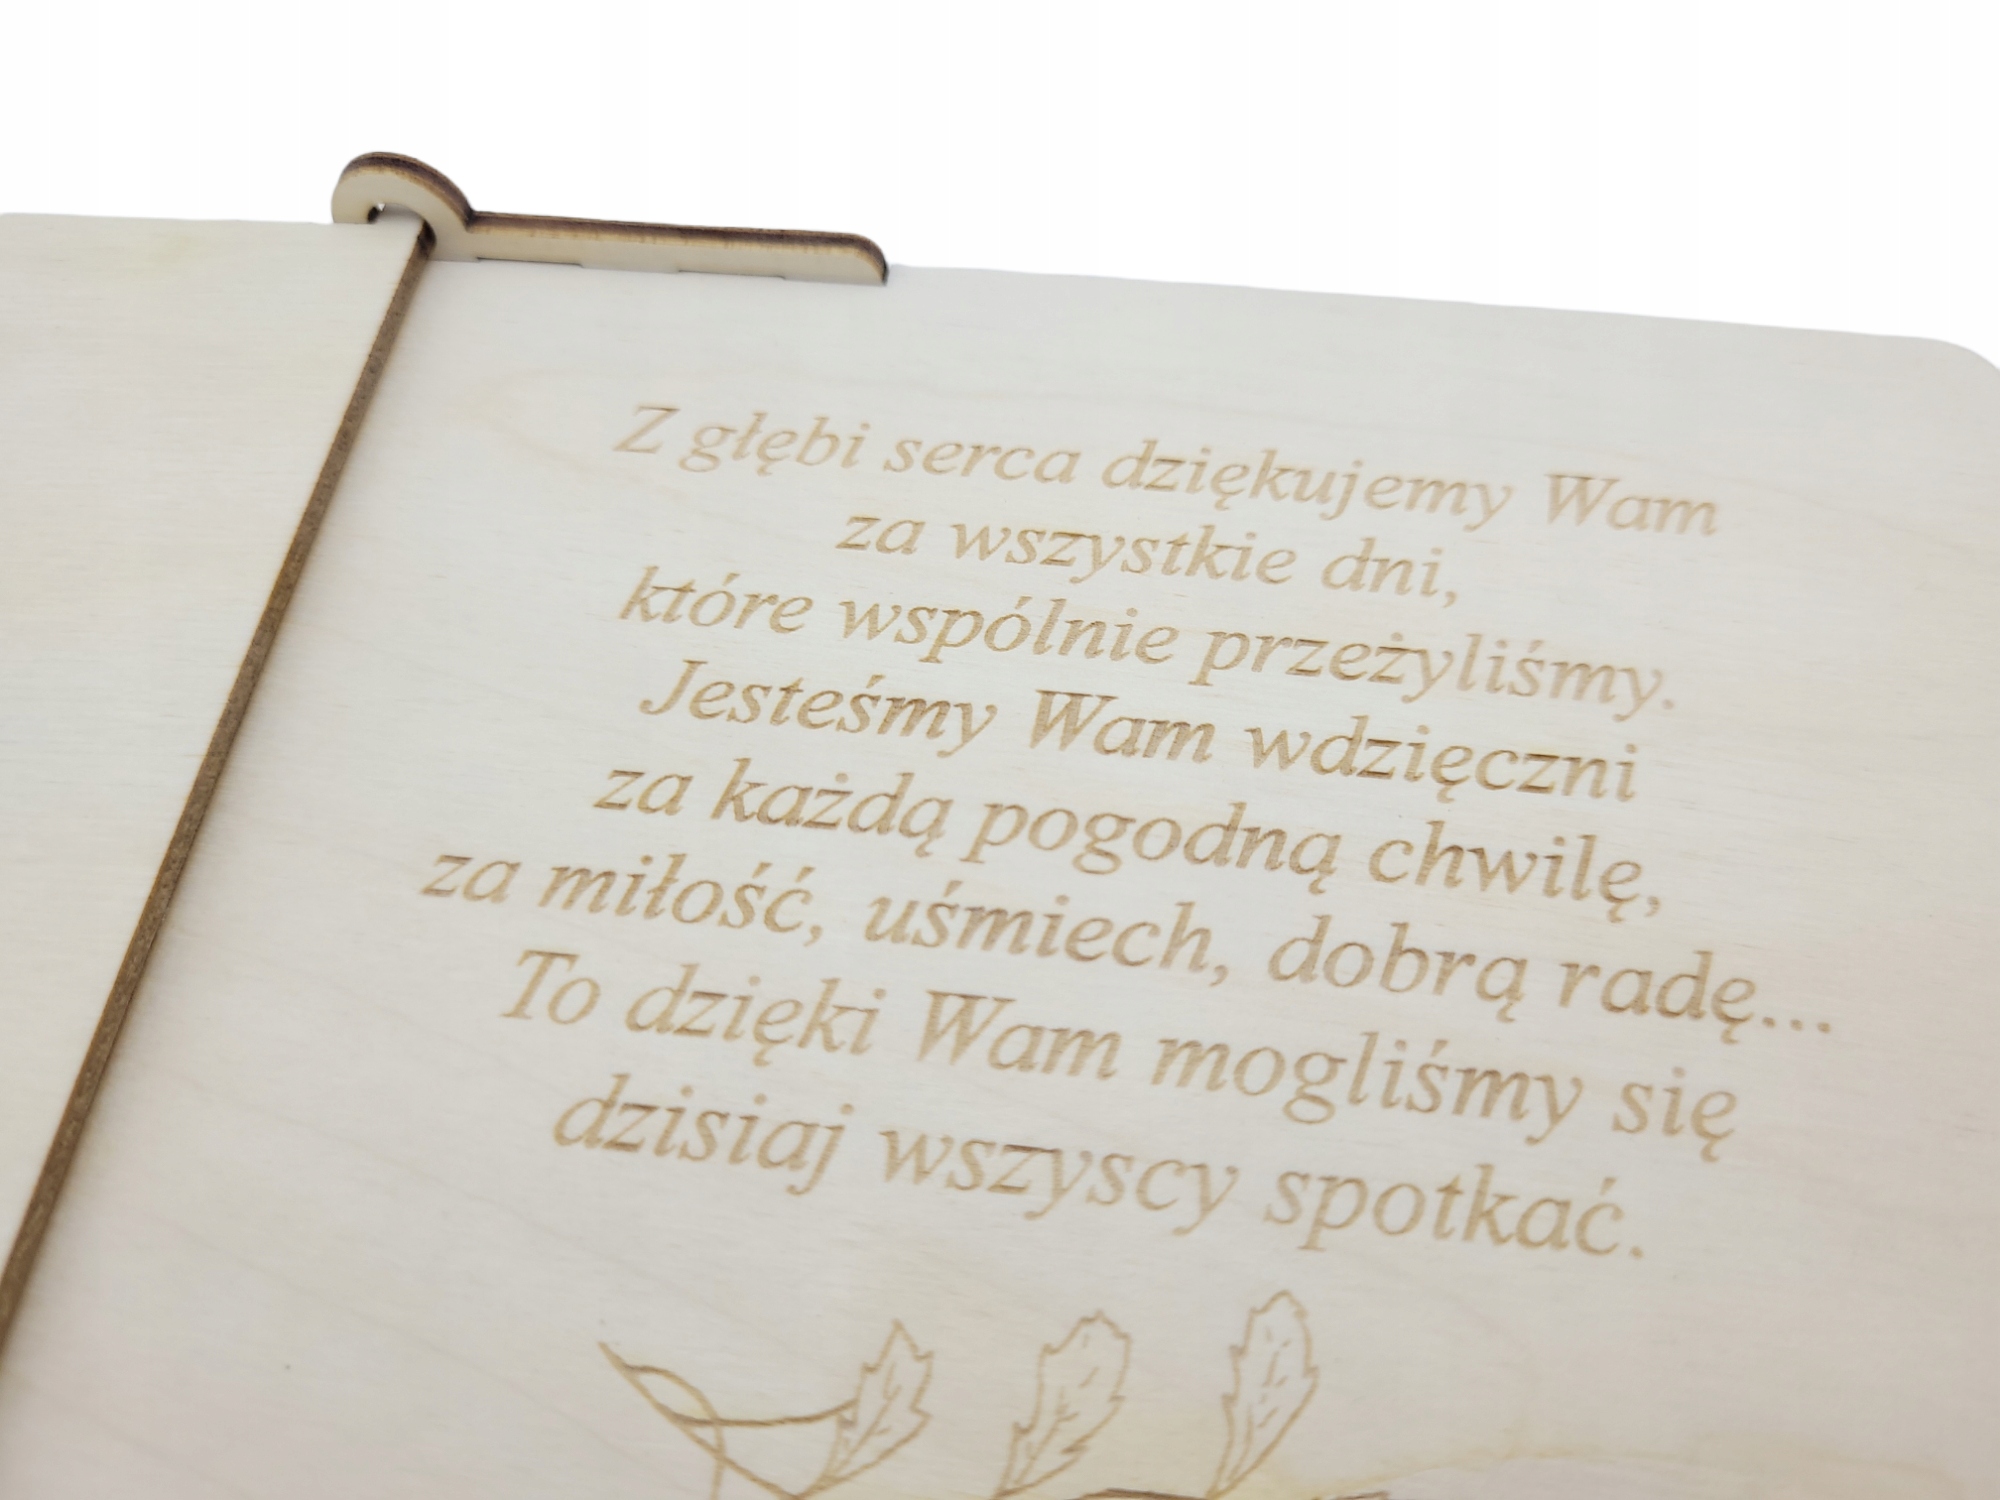 Z głębi serca dziękujemy Wam
za wszystkie dni,
które wspólnie przeżyliśmy.
Jesteśmy Wam wdzięczni
za każdą pogodną chwilę,
za miłość, uśmiech, dobrą radę...
To dzięki Wam mogliśmy się
dzisiaj wszyscy spotkać.